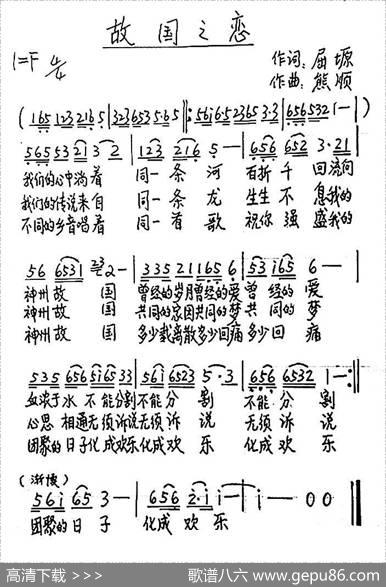 故国之恋
1=F 4/4
作词：屈塬
作曲：熊顺
( 165 123 216 5 | 323 653 5·6 5 ‖: 5616 523 65 3·3 | 656532 1 — )
565 53 21 3 2 | 123 216 5 — | 656 652 3·21 |
我们的心中淌着 同一条河 百折千回流向
我们的传说来自 同一条龙 生生不息我的
不同的乡音唱着 同一首歌 祝你强盛我的
56 6531 232 — | 335 21 1165 6 | 53 165 6 — |
神州故国 曾经的岁月曾经的爱 曾经的爱
神州故国 共同的家国共同的梦 共同的梦
神州故国 多少载离散多少回痛 多少回痛
535 656 5165 33 | 561 6523 5·3 | 656 6532 1 — :‖
血浓于水不能分割不能分割 不能分割
心思相通无须诉说无须诉说 无须诉说
团聚的日子化成欢乐化成欢乐
(渐慢)
561 65 3 — | 656 2·1 1 — | 1 — 0 0 ‖
团聚的日子 化成欢乐
高清下载 >>>
歌谱八六 www.gepu86.com